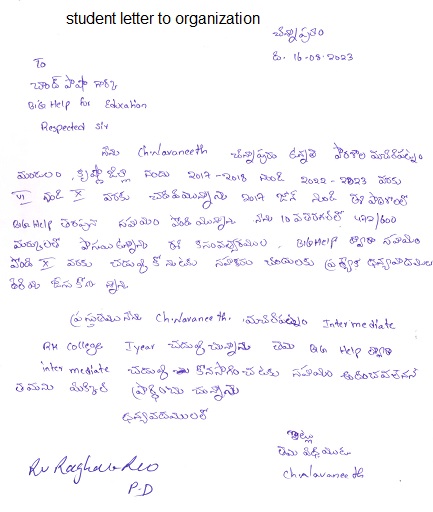 student letter to organization
చిన్నాపురం
ది. 16-08-2023
To
చాంద్ పాషా గారికి
BIG Help for Education
Respected Sir
నేను Ch.Navaneeth చిన్నాపురం ఉన్నత పాఠశాల మచిలీపట్నం
మండలం, కృష్ణా జిల్లా నందు 2017-2018 నుండి 2022-2023 వరకు
VI నుండి X వరకు చదివియున్నాను 2017 జూన్ నుండి ఈ పాఠశాలలో
BIG Help తరపున సహాయం పొందియున్నాను నేను 10 వతరగతిలో /600
మార్కులతో పాసయి ఉన్నాను ఈ, BIG Help ద్వారా సహాయం
పొంది X వరకు చదువు కోనుటకు సహకారం నందులకు ప్రత్యేక ధన్యవాదములు
తెలియ చేసుకొను చున్నాను
ప్రస్తుతము నేను Ch.Navaneeth. మచిలీపట్నం Intermediate
RH College I year చదువు చున్నాను తమ BIG Help ద్వారా
intermediate చదువు కొనసాగించుటకు సహాయం
తమని మిక్కిలి ప్రార్థించు చున్నాను
ధన్యవాదములతో
ఇట్లు
తమ విధేయుడు
Ch.Navaneeth
Rv Raghava Rao
P-D